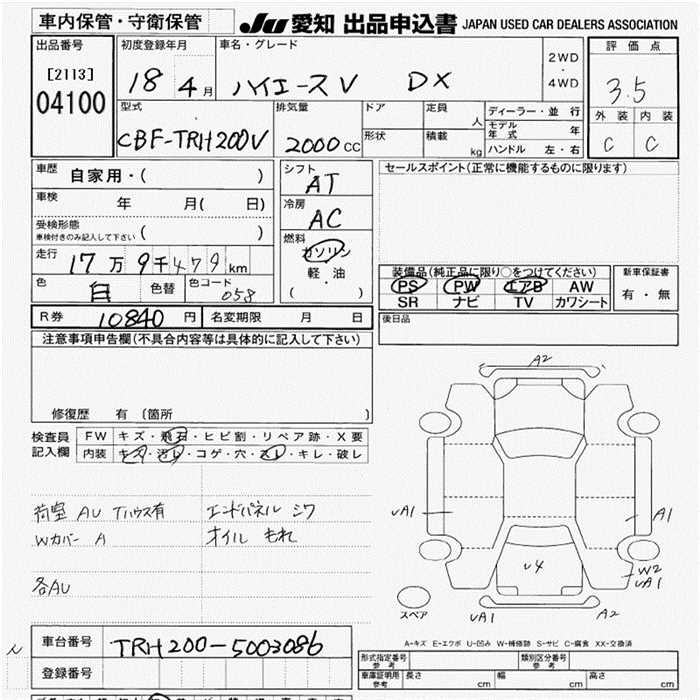 車内保管・守衛保管
JU 愛知 出品申込書 JAPAN USED CAR DEALERS ASSOCIATION
出品番号
[2113]
04100
初度登録年月
18 4月
車名・グレード
ハイエースV DX
2WD
・
4WD
評価点
3.5
外装 内装
C C
型式
CBF-TRH200V
排気量
2000cc
ドア
形状
定員 人
積載 kg
ディーラー・並行
モデル年式 年
ハンドル 左・右
車歴
自家用・( )
車検 年 月( 日)
受検形態
車検付きのみ記入して下さい ( )
走行 17万9千479km
色 白 色替 色コード 058
シフト
AT
冷房
AC
燃料
ガソリン
軽・油
( )
セールスポイント(正常に機能するものに限ります)
装備品(純正品に限り○をつけてください)
PS PW エアB AW
SR ナビ TV カワシート
新車保証書
有・無
R券 10840円 名変期限 月 日
後日品
注意事項申告欄(不具合内容等は具体的に記入して下さい)
修復歴 有 [箇所 ]
検査員
記入欄
FW キズ・飛石・ヒビ割・リペア跡・X要
内装 キズ・汚レ・コゲ・穴・スレ・キレ・破レ
荷室 AU Tハウス有 エンドパネル シワ
Wカバー A オイル もれ
各AU
A2
UA1
A1
U4
W2
UA1
スペア
UA1
A2
A-キズ E-エクボ U-凹み W-補修跡 S-サビ C-腐食 XX-交換済
車台番号 TRH200-5003086
登録番号
型式指定番号
参考
類別区分番号
参考
車庫証明用
参考
長さ cm 幅 cm 高さ cm